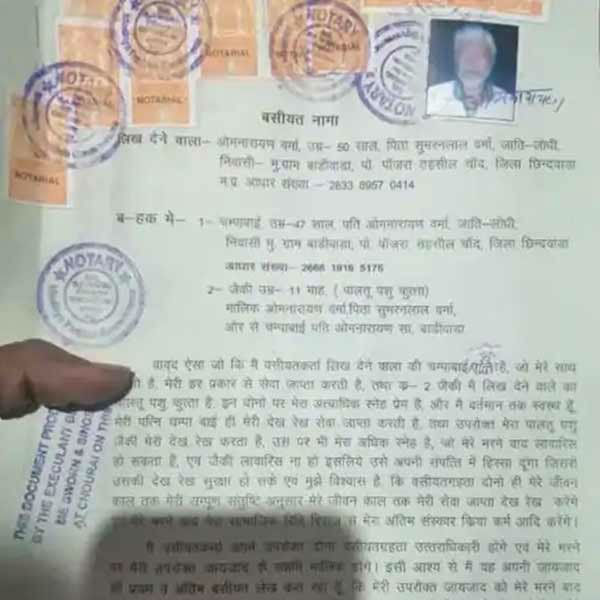 NOTARY
NOTARIAL
NOTARIAL
NOTARIAL
NOTARIAL
NOTARY
NOTARY
NOTARY
बसीयत नामा
लिख देने वाला- ओमनारायण वर्मा, उम्र- 50 साल, पिता सुमरनलाल वर्मा, जाति-लोधी,
निवासी- मु.ग्राम बाडीवाडा, पो. पॉजरा तहसील चॉद, जिला छिन्दवाडा
म.प्र. आधार संख्या - 2633 8957 0414
ब-हक मे- 1- चम्पाबाई, उम्र-47 साल, पति ओमनारायण वर्मा, जाति-लोधी,
निवासी मु. ग्राम बाडीवाडा, पो. पॉजरा तहसील चॉद, जिला छिन्दवाडा
आधार संख्या- 2666 1916 5175
2- जेकी उम्र- 11 माह, ( पालतू पशु कुत्ता)
मालिक ओमनारायण वर्मा,पिता सुमरनलाल वर्मा,
और से चम्पाबाई पति ओमनारायण सा. बाडीवाडा
NOTARY
वावद ऐसा जो कि मै वसीयतकर्ता लिख देने वाला की चम्पाबाई है, जो मेरे साथ
है, मेरी हर प्रकार से सेवा जाप्ता करती है, तथा क- 2 जेकी में लिख देने वाले का
पशु कुत्ता है, इन दोनो पर मेरा अत्याधिक स्नेह प्रेम है, और मै वर्तमान तक स्वस्थ हूँ,
मेरी पत्नि चम्पा बाई ही मेरी देख रेख सेवा जाप्ता करती है, तथा उपरोक्त मेरा पालतू पशु
जेकी मेरी देख रेख करता है, उस पर भी मेरा अधिक स्नेह है, जो मेरे मरने बाद लावारिस
हो सकता है, एव जेकी लावारिस ना हो इसलिये उसे अपनी संपत्ति में हिस्सा दूगा जिससे
उसकी देख रेख सुरक्षा हो सके एव मुझे विश्वास है, कि वसीयतग्रहता दोनो ही मेरे जीवन
काल तक मेरी सम्पूण संतुष्टि अनुसार मेरे जीवन काल तक मेरी सेवा जाप्ता देख रेख करेगे
मेरे मरने बाद मेरा सामाजिक रिति रिवाज से मेरा अंतिम संस्कार किया कर्म आदि करेंगे।
मै वसीयतकर्ता अपने उपरोक्त दोनो वसीयतग्रहता उत्तराधिकारी होगे एव मेरे मरने
पर मेरी उपरोक्त जायजाद के मालिक होगे। इसी आशय से मै यह अपनी जायजाद
की प्रथम व अंतिम बसीयत लेख कर रहा हूँ, कि मेरी उपरोक्त जायजाद को मेरे मरने बाद
THIS DOCUMENT
BY THE EXECULANT
BE SWORN &
AT CHOURAI ON THIS